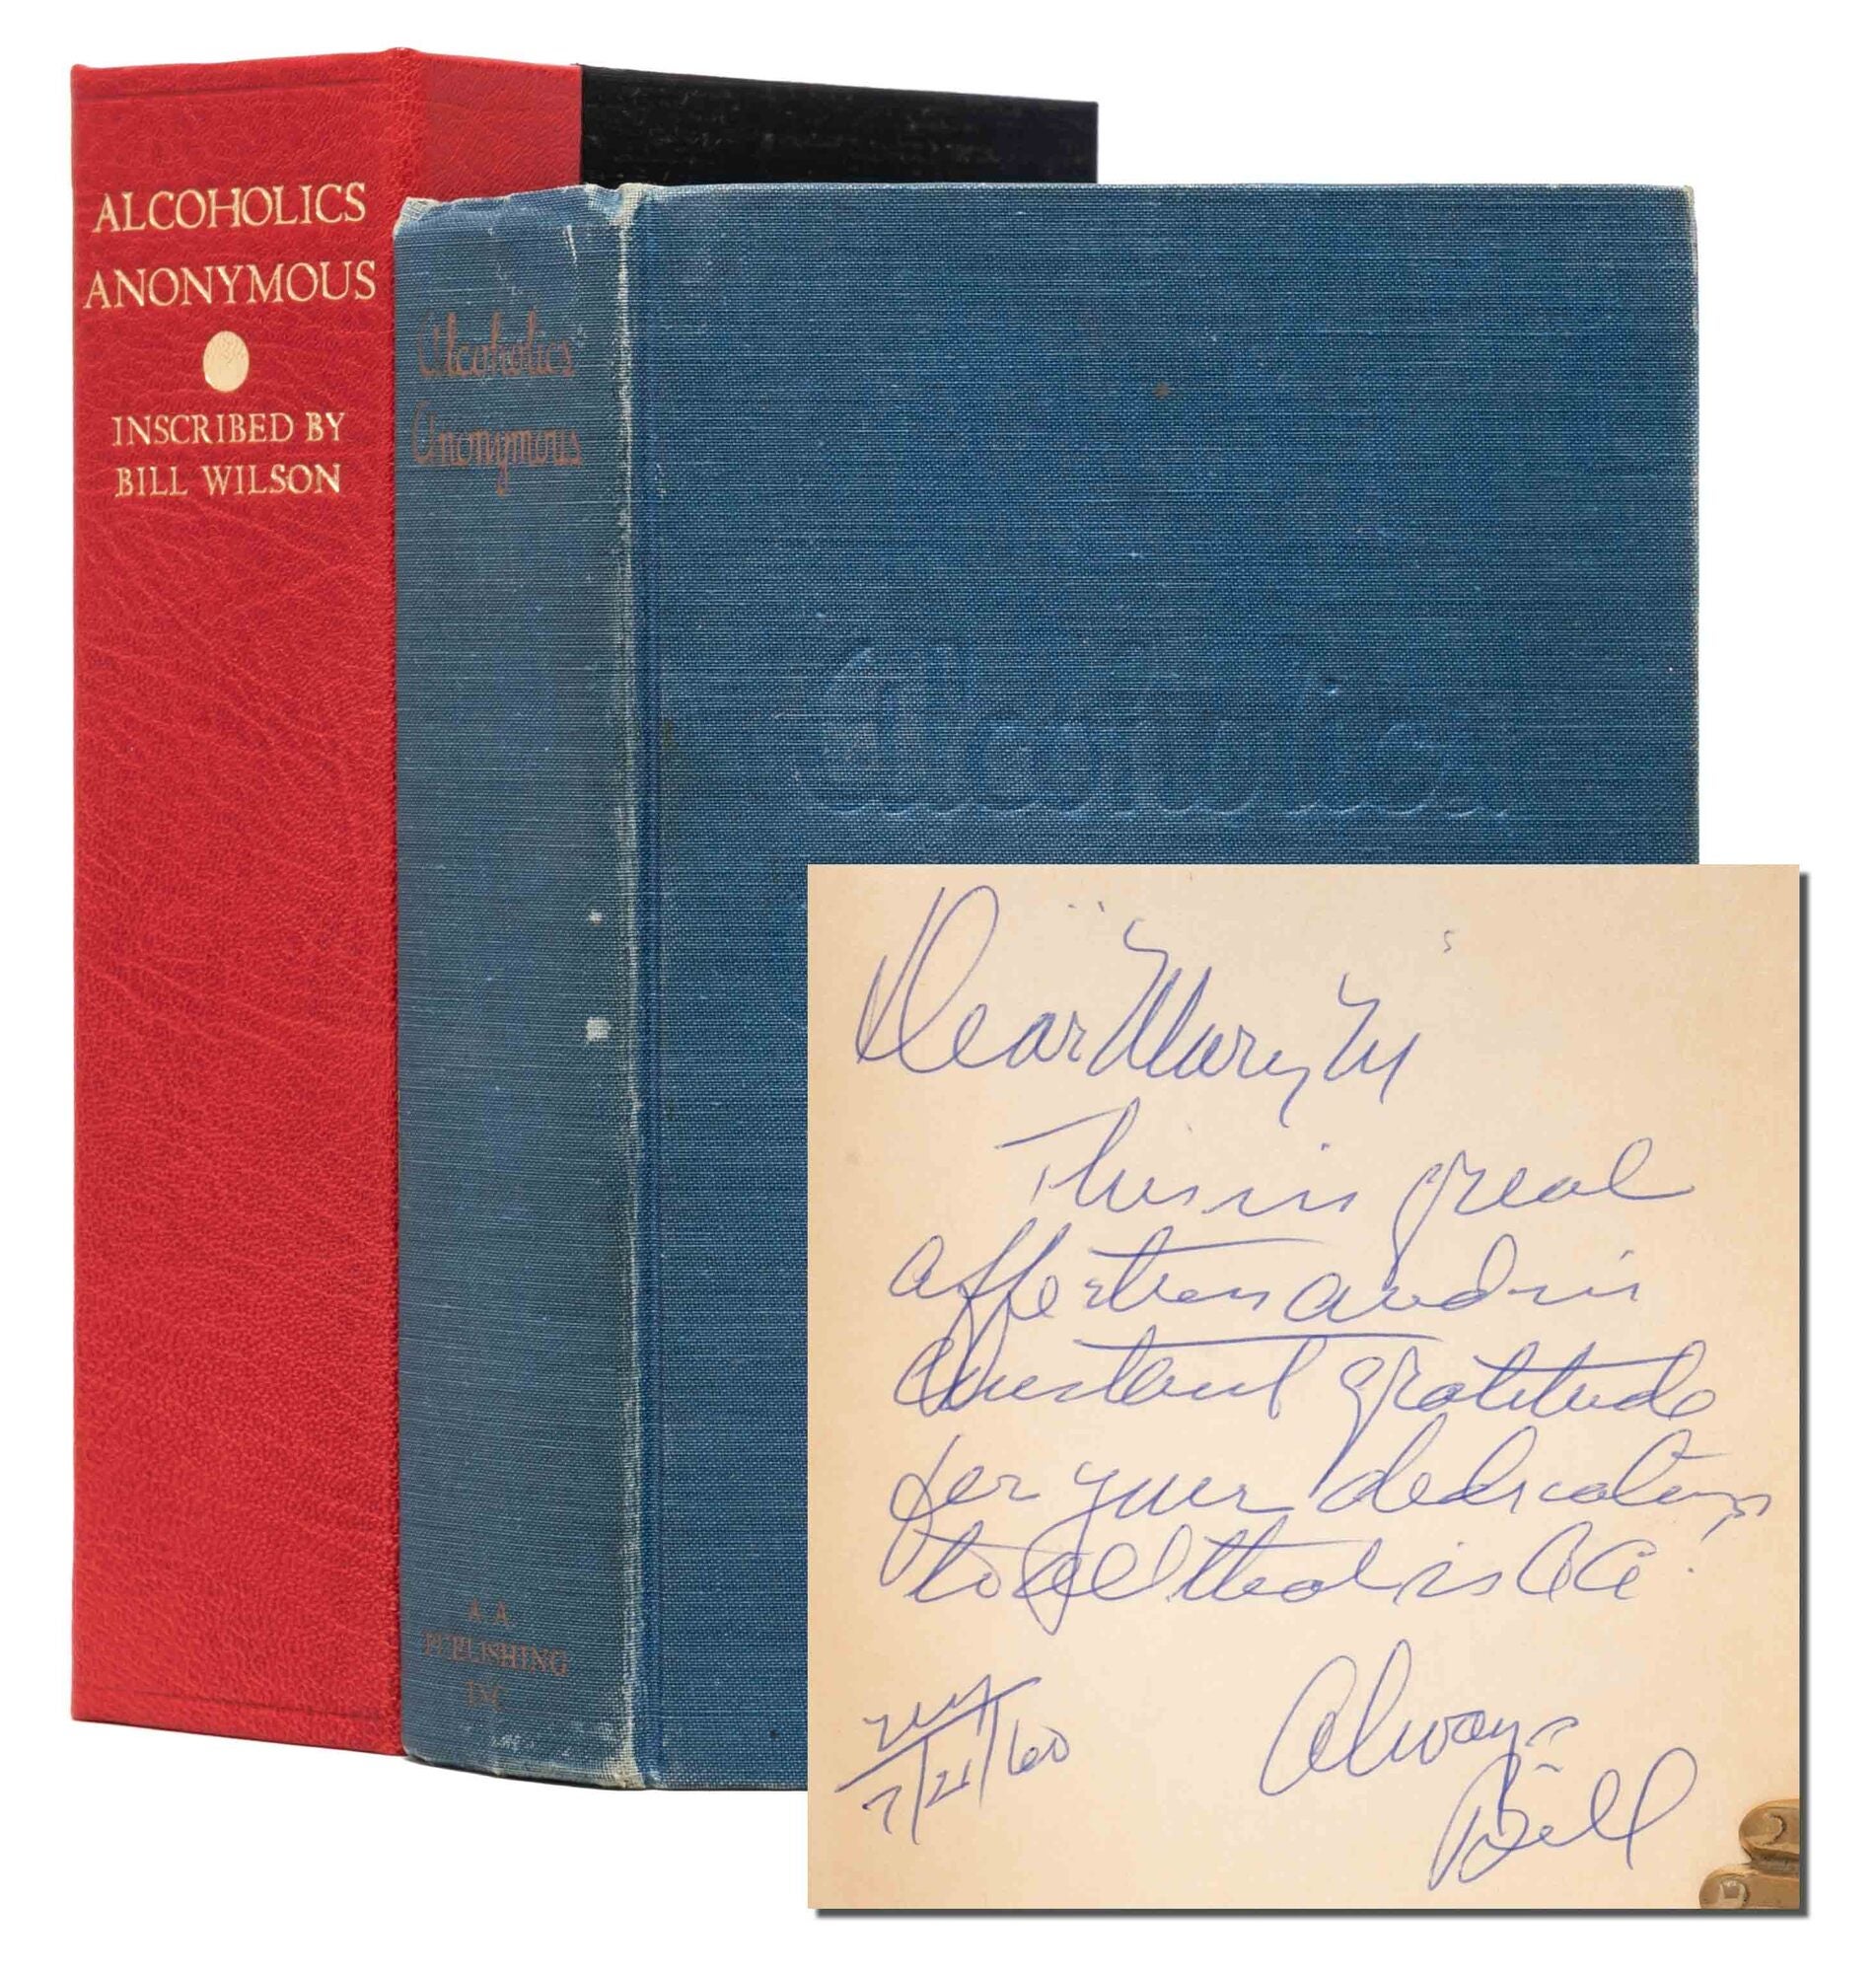 ALCOHOLICS
ANONYMOUS
INSCRIBED BY
BILL WILSON
Alcoholics
Anonymous
A A
PUBLISHING
INC
Alcoholics
Dear "Mary M"
This in great
affection and in
constant gratitude
for your dedication
to all that is AA!
Always
Bill
7/21/60